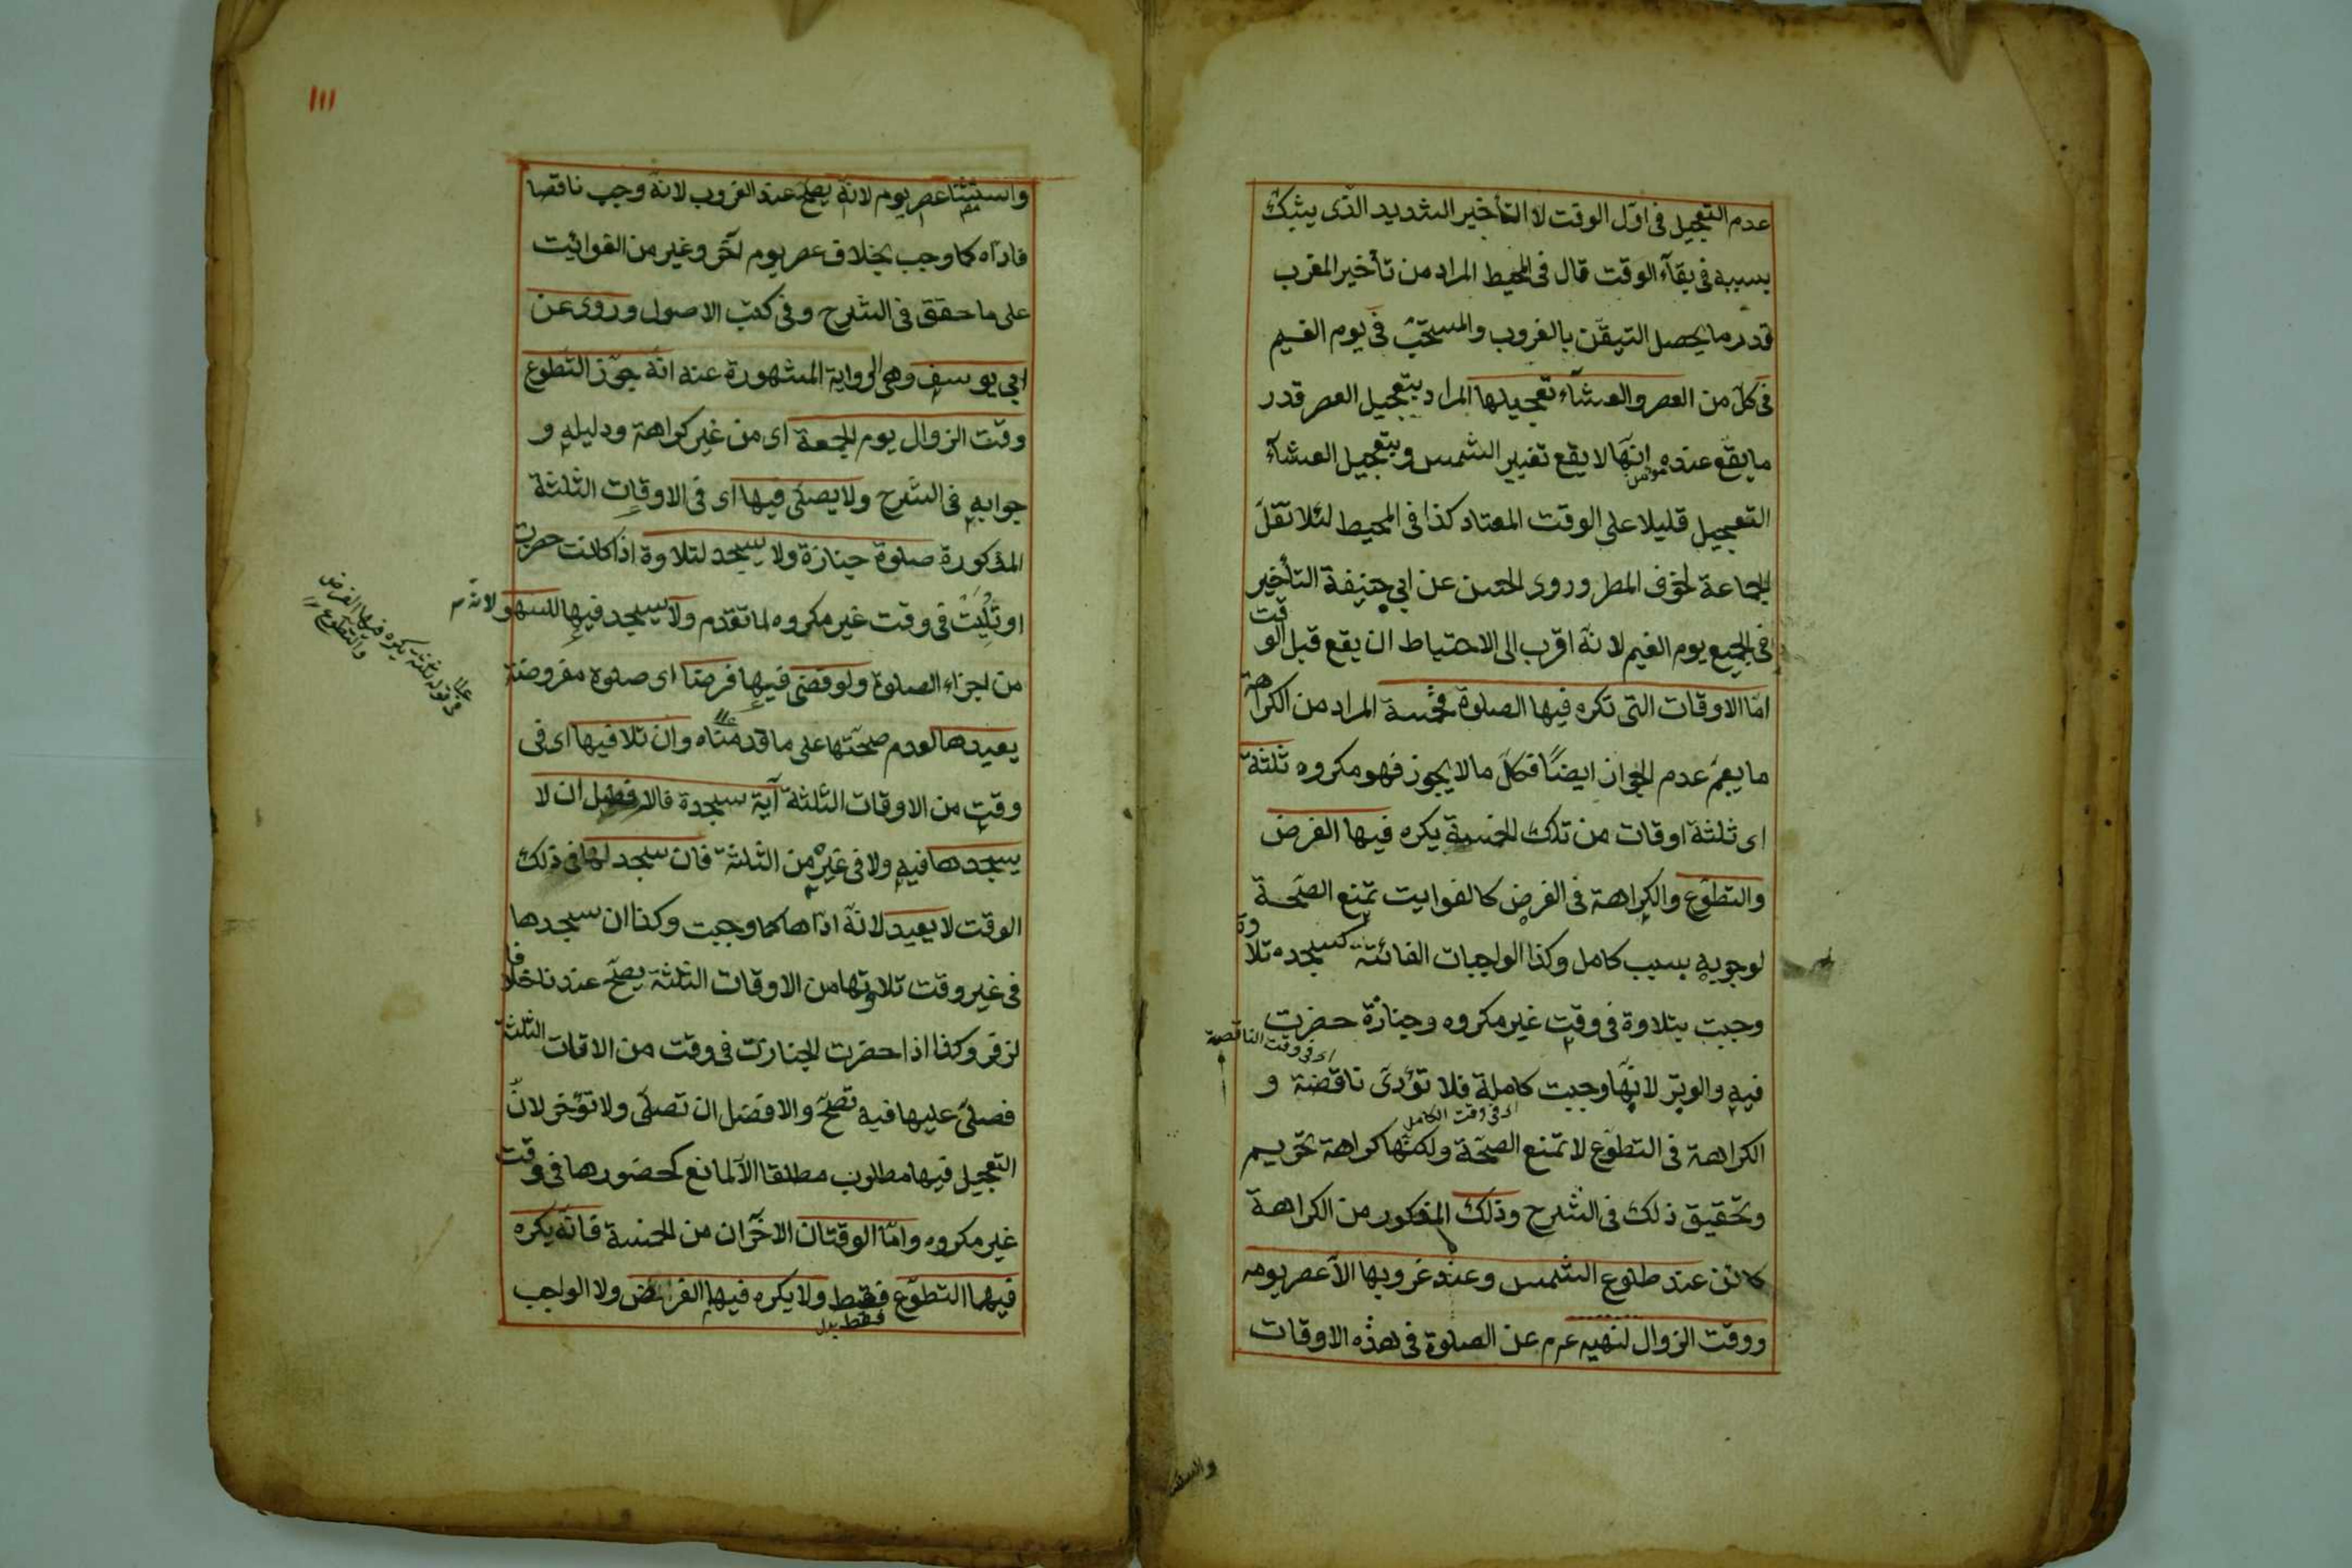 عدم التعجيل فى اوّل الوقت لا التأخير الشديد الذى يشكّ
بسببه فى بقآء الوقت قال فى المحيط المراد من تأخير المغرب
قدر ما يحصل التيقّن بالغروب والمستحبّ فى يوم الغيم
فى كلّ من العصر والعشآء تعجيلها المراد بتعجيل العصر قدر
ما يقع عنده انّها لا يقع تغيير الشمس وبتعجيل العشآء
التعجيل قليلا على الوقت المعتاد كذا فى المحيط لئلا تقلّ
الجماعة لخوف المطر وروى الحسن عن ابى حنيفة التأخير
فى الجميع يوم الغيم لانّه اقرب الى الاحتياط ان يقع قبل الوقت
امّا الاوقات التى تكره فيها الصلوة فخمسة المراد من الكراهة
ما يعمّ عدم الجواز ايضًا فكلّ ما لا يجوز فهو مكروه ثلثة
اى ثلثة اوقات من تلك الخمسة يكره فيها الفرض
والتطوّع والكراهة فى الفرض كالفوايت تمنع الصّحة
لوجوبه بسبب كامل وكذا الواجبات الفائتة كسجده تلاوة
وجبت بتلاوة فى وقت غير مكروه وجنازة حضرت
اى فى وقت الناقصة
فيه والوتر لانّها وجبت كاملة فلا تؤدّى ناقصة و
اى فى وقت الكامل
الكراهة فى التطوّع لا تمنع الصحّة ولكنّها كراهة تحريم
وتحقيق ذلك فى الشرح وذلك المذكور من الكراهة
كائن عند طلوع الشمس وعند غروبها الّا عصر يومه
ووقت الزوال لنهيه عم عن الصلوة فى هذه الاوقات
١١١
واستثنا عصر يوم لانّه يصحّ عند الغروب لانّه وجب ناقصا
فادّاه كما وجب بخلاف عصر يوم آخر وغير من الفوائت
على ما حقق فى الشرح وفى كتب الاصول وروى عن
ابى يوسف وهى الرواية المشهورة عنه انّه جوّز التطوع
وقت الزوال يوم الجمعة اى من غير كراهة ودليله و
جوابه فى الشرح ولا يصلى فيها اى فى الاوقات الثلثة
المذكورة صلوة جنازة ولا يسجد لتلاوة اذا كانت حضرت
او تُلِيَتْ فى وقت غير مكروه لما تقدم ولا يسجد فيها للسهو لانه
من اجزاء الصلوة ولو قضى فيها فرضا اى صلوة مفروضة
يعيدها لعدم صحّتها على ما قدمناه وان تلا فيها اى فى
وقت من الاوقات الثلثة آية سجدة فالافضل ان لا
يسجدها فيه ولا فى غيره من الثلثة فان سجد لها فى ذلك
الوقت لا يعيد لانّه ادّاها كما وجبت وكذا ان سجدها
فى غير وقت تلاوتها من الاوقات الثلثة يصحّ عندنا خلافا
لزفر وكذا اذا حضرت الجنازة فى وقت من الاقات الثلثة
فصلىّ عليها فيه تصحّ والافضل ان تصلّى ولا تؤخر لانّ
التعجيل فيها مطلوب مطلقا الّا لمانع كحضورها فى وقت
غير مكروه وامّا الوقتان الاخران من الخمسة فانّه يكره
فيهما التطوّع فقط ولا يكره فيهما الفرائض ولا الواجب
فقط بدل
قوله ثلثة يكره فيها الفرض
والتطوّع